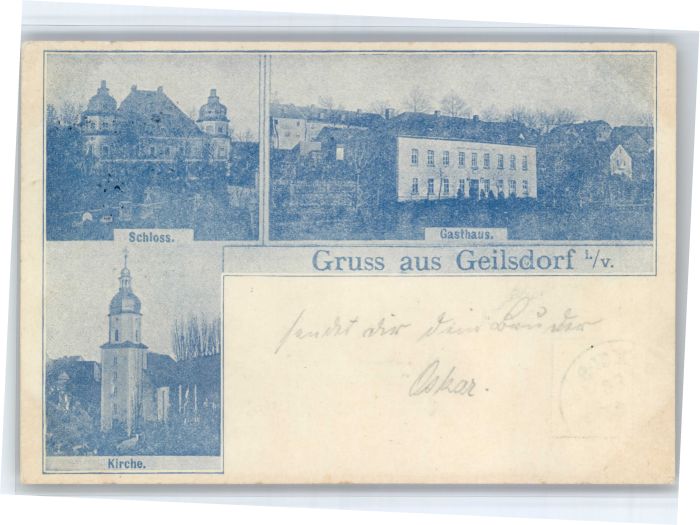 Schloss.
Gasthaus.
Gruss aus Geilsdorf i./V.
sendet dir dein Bruder
Oskar.
Kirche.